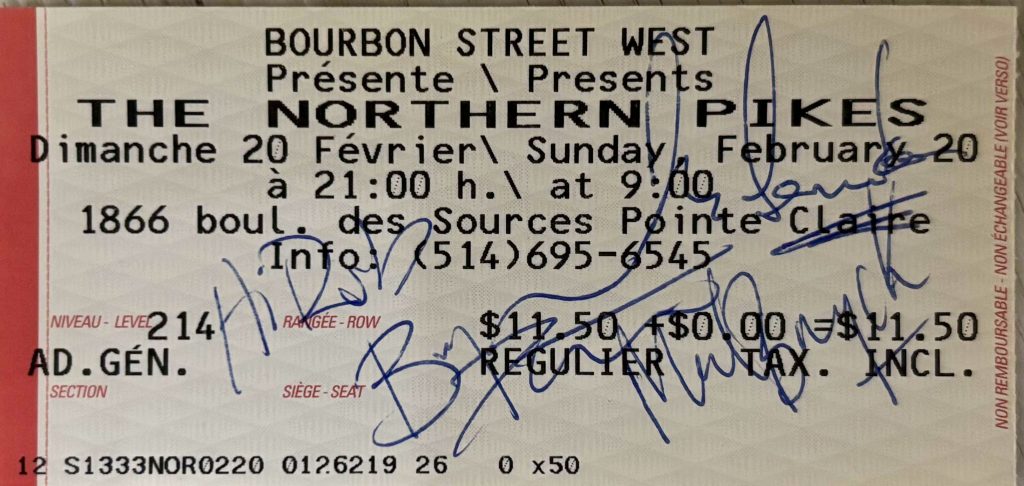 BOURBON STREET WEST
Présente \ Presents
THE NORTHERN PIKES
Dimanche 20 Février\ Sunday, February 20
à 21:00 h.\ at 9:00
1866 boul. des Sources Pointe Claire
Info: (514)695-6545
Hi Rob
NIVEAU - LEVEL 214 RANGÉE - ROW $11.50 +$0.00 =$11.50
AD.GÉN. REGULIER TAX. INCL.
SECTION SIÈGE - SEAT
12 S1333NOR0220 0126219 26 0 x50
NON REMBOURSABLE - NON ÉCHANGEABLE (VOIR VERSO)